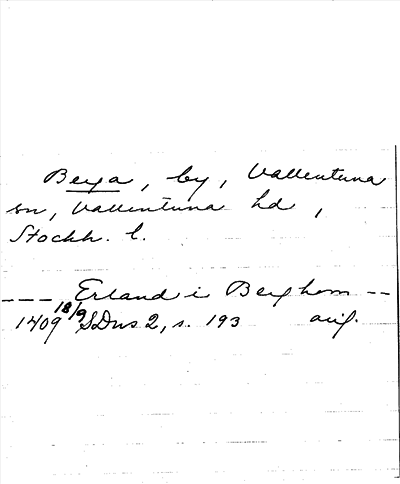 Berga, by, Vallentuna
sn, Vallentuna hd,
Stockh. l.
--- Erland i Berghom --
1409 18/9 SDns 2, s. 193 orig.